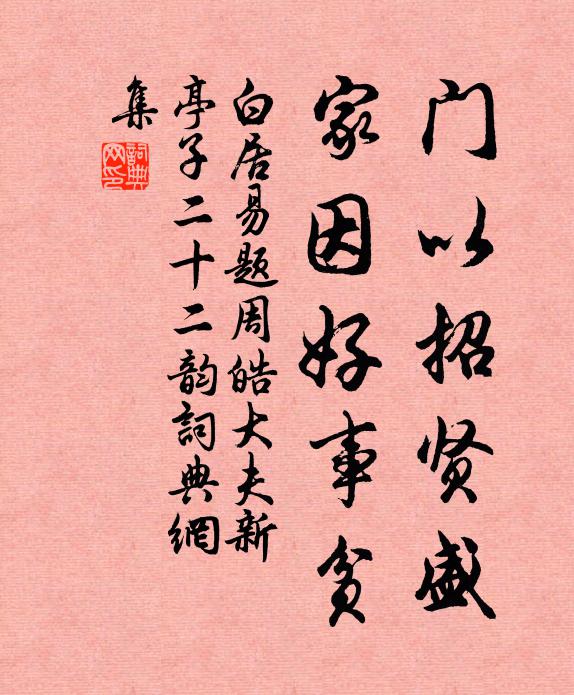 门以招贤盛
家因好事贫
白居易题周皓大夫新
亭子二十二韵詞典網
集
詞典網印